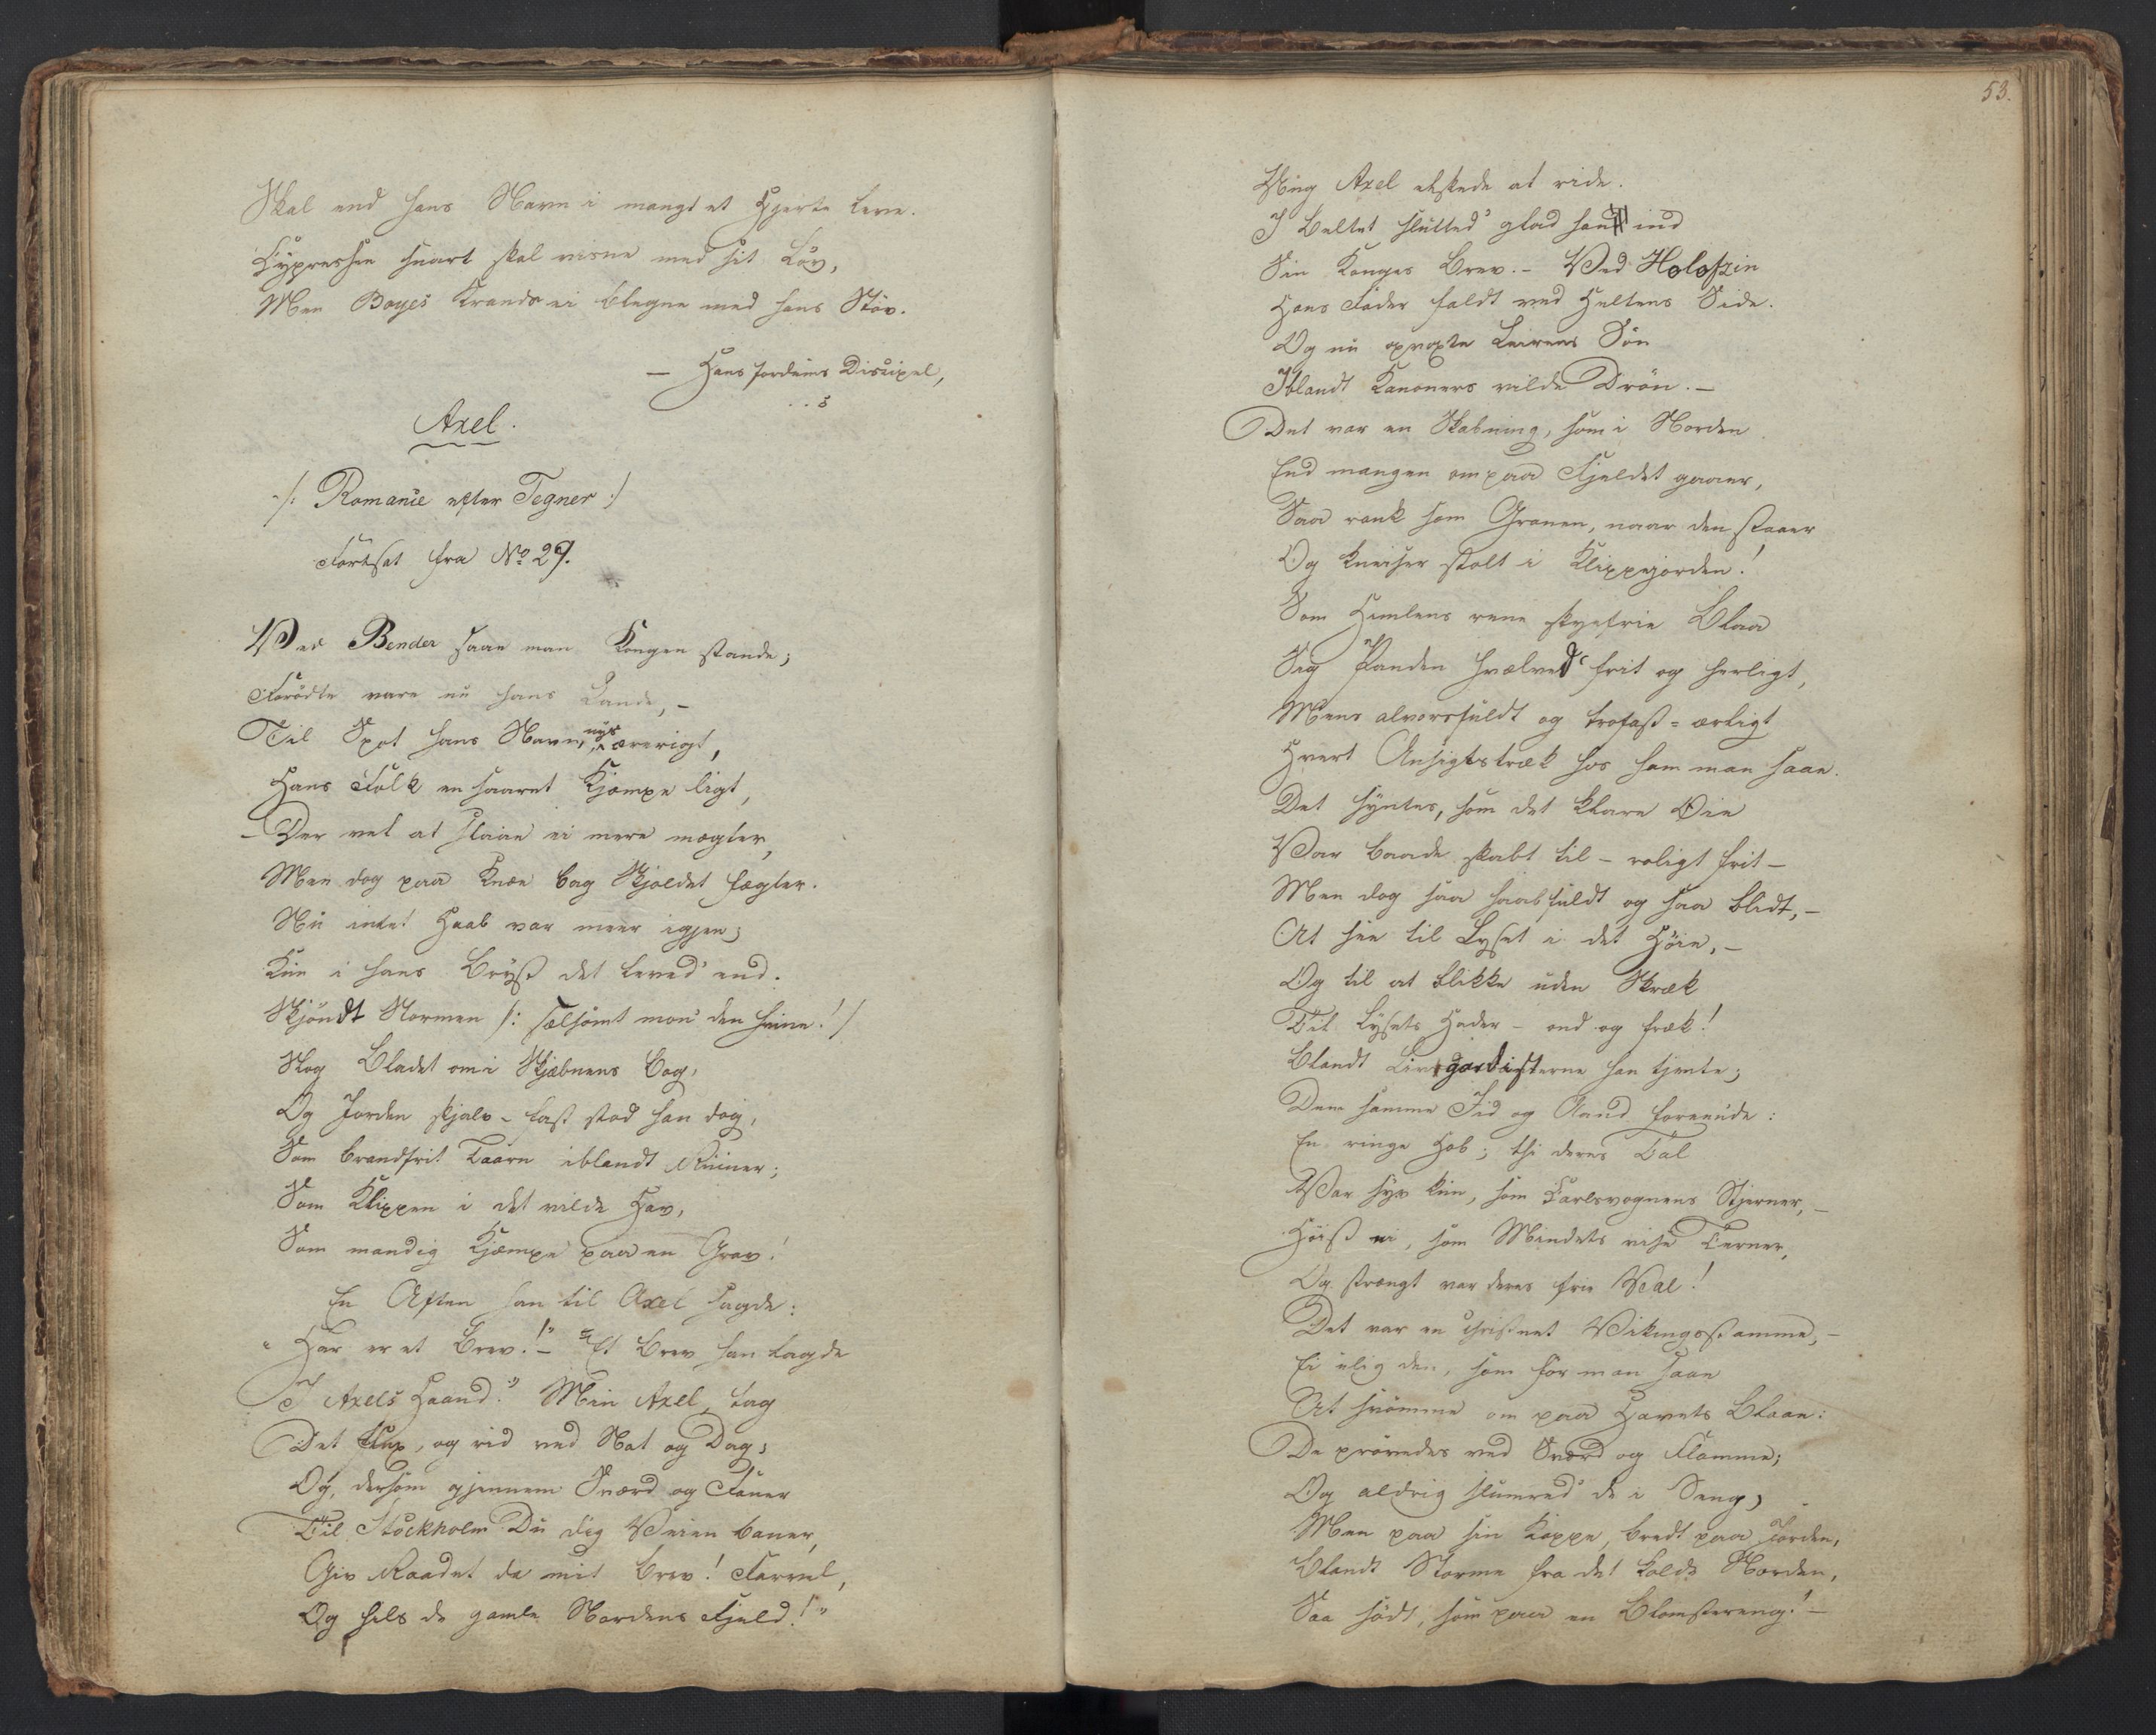 Skal end hans Navn i mangt et Hjerte leve.
Cypressen snart skal visne med sit Løv,
Men Boyes Krands ei blegne med hans Støv.
— Hans fordums Discipel,
. . s
Axel.
/: Romance efter Tegner :/
Fortsat fra No 29.
Ved Bender saae man Kongen stande;
Forödte vare nu hans Lande, –
Til Spot hans Navn, nys ærerigt,
Hans Folk en saaret Kjæmpe ligt,
– Der vel at staae ei mere mægter,
Men dog paa Knæ bag Skjoldet fægter.
Nu intet Haab var meer igjen;
Kun i hans Bryst det leved' end.
Skjöndt Stormen /: sælsomt mon' den hvine! /
Slog Bladet om i Skjæbnens Bog,
Og Jorden skjalv – fast stod han dog,
Som brandfrit Taarn iblandt Ruiner;
Som Klippen i det vilde Hav,
Som mandig Kjæmpe paa en Grav!
En Aften han til Axel sagde:
"Her er et Brev!" – Et Brev han lagde
I Axels Haand." Min Axel, tag
Det flux, og rid ved Nat og Dag;
Og, dersom gjennem Sværd og Faner
Til Stockholm Du dig Veien baner,
Giv Raadet da mit Brev! Farvel,
Og hils de gamle Nordens Fjeld!"
53.
Ung Axel elskede at ride.
I Beltet slutted' glad han ind
Sin Konges Brev. – Ved Holofzin
Hans Fader faldt ved Heltens Side.
Og nu opvoxte Leirens Sön
Iblandt Kanoners vilde Drön. –
Det var en Skabning, som i Norden
End mangen om paa Fjeldet gaaer,
Saa rank som Granen, naar den staaer
Og kneiser stolt i Klippejorden!
Som Himlens rene skyefrie Blaa
Sig Panden hvælved' frit og herligt,
Mens alvorsfuldt og trofast-ærligt
Hvert Ansigtstræk hos ham man saae.
Det syntes, som det klare Øie
Var baade skabt til – roligt frit –
Men dog saa haabfuldt og saa blidt, –
At see til Lyset i det Høie, –
Og til at blikke uden Skræk
Til Lysets Hader – ond og fræk!
Blandt Livgardisterne han tjente;
Dem samme Id og Aand foreente:
En ringe Hob; thi deres Tal
Var syv kun, som Carlsvognens Stjerner, –
Höist ni, som Mindets vise Terner,
Og strængt var deres frie Val!
Det var en christnet Vikingsstamme, –
Ei ulig den, som för man saae
At svömme om paa Havets Blaae:
De prövedes ved Sværd og Flamme;
Og aldrig slumred' de i Seng;
Men paa sin Kappe, bredt paa Jorden,
Blandt Storme fra det kolde Norden,
Saa södt, som paa en Blomstereng! –